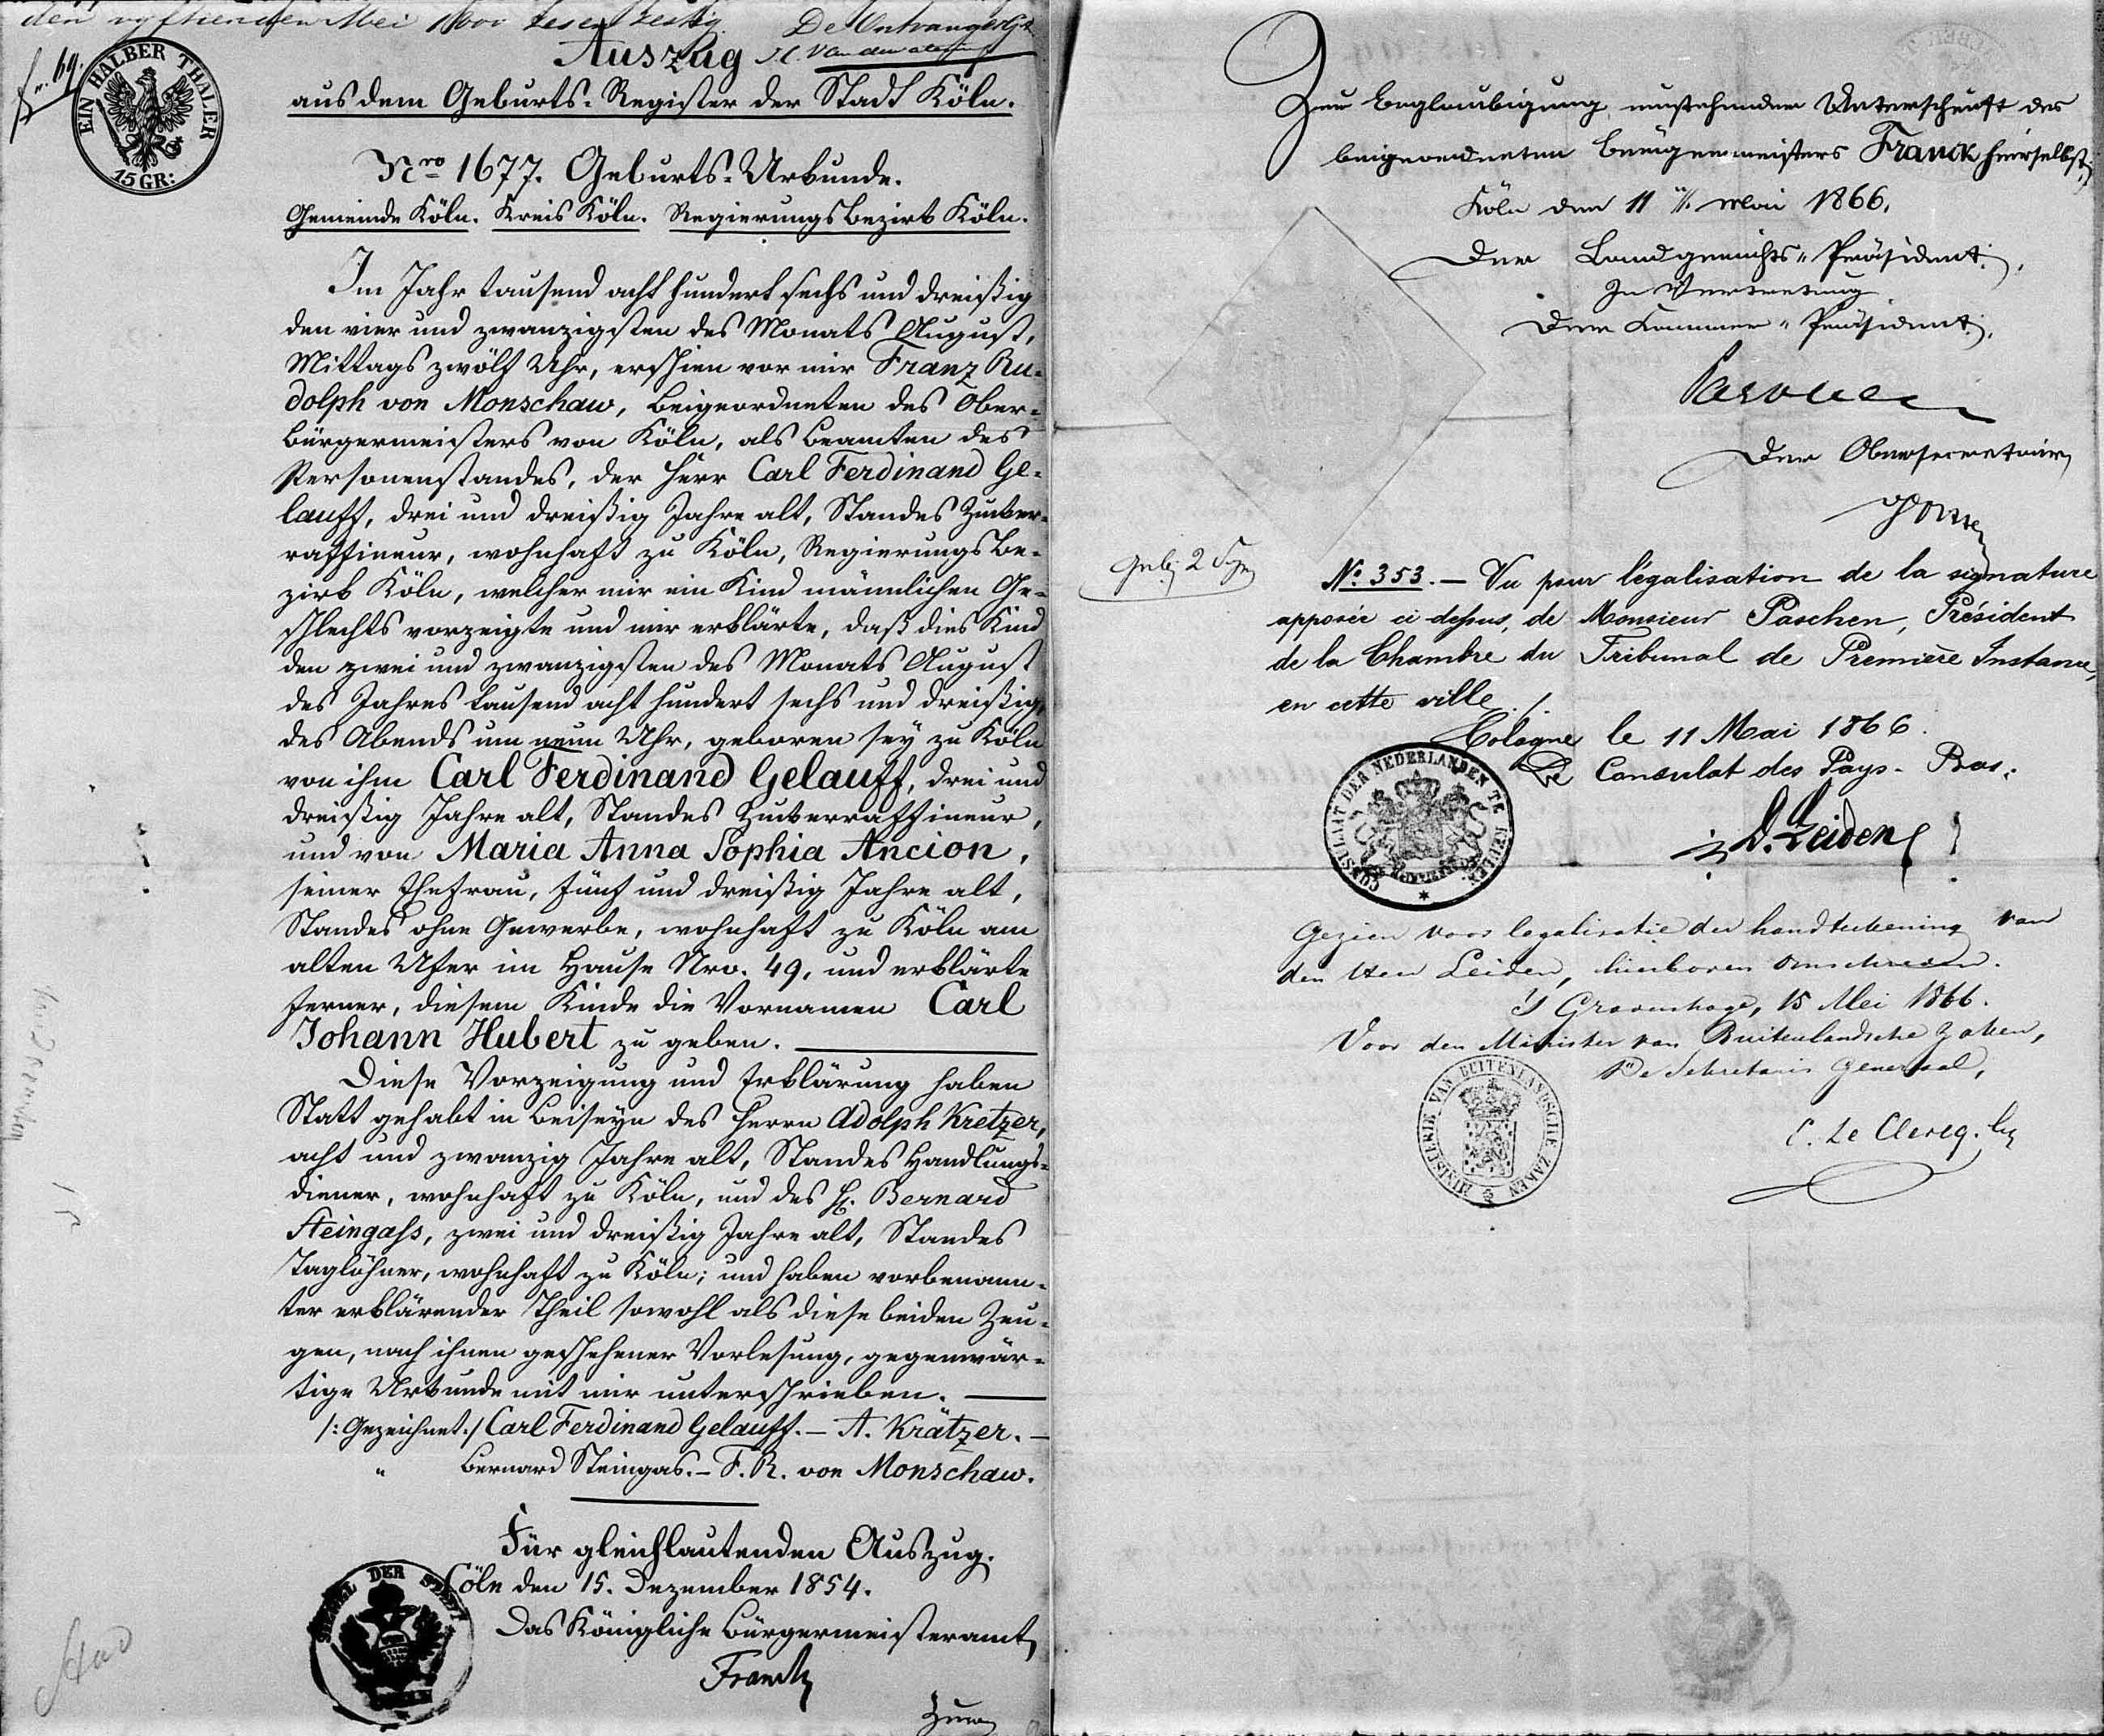 den vyftienden Mei 1800 zesen zestig. De Ontvanger
Auszug
aus dem Geburts-Register der Stadt Köln.
EIN HALBER THALER
15 GR:
Nro 1677. Geburts-Urkunde.
Gemeinde Köln. Kreis Köln. Regierungsbezirk Köln.
Im Jahr tausend acht hundert sechs und dreißig
den vier und zwanzigsten des Monats August,
Mittags zwölf Uhr, erschien vor mir Franz Ru-
dolph von Monschaw, Beigeordneten des Ober-
bürgermeisters von Köln, als Beamten des
Personenstandes, der Herr Carl Ferdinand Ge-
lauff, drei und dreißig Jahre alt, Standes Zucker-
raffineur, wohnhaft zu Köln, Regierungsbe-
zirk Köln, welcher mir ein Kind männlichen Ge-
schlechts vorzeigte und mir erklärte, daß dies Kind
den zwei und zwanzigsten des Monats August
des Jahres tausend acht hundert sechs und dreißig,
des Abends um neun Uhr, geboren sey zu Köln
von ihm Carl Ferdinand Gelauff, drei und
dreißig Jahre alt, Standes Zuckerraffineur,
und von Maria Anna Sophia Ancion,
seiner Ehefrau, fünf und dreißig Jahre alt,
Standes ohne Gewerbe, wohnhaft zu Köln am
alten Ufer im Hause Nro. 49, und erklärte
ferner, diesem Kinde die Vornamen Carl
Johann Hubert zu geben.
Diese Vorzeigung und Erklärung haben
Statt gehabt in Beiseyn des Herrn Adolph Kretzer,
acht und zwanzig Jahre alt, Standes Handlungs-
diener, wohnhaft zu Köln, und des H. Bernard
Steingass, zwei und dreißig Jahre alt, Standes
Taglöhner, wohnhaft zu Köln; und haben vorbenann-
ter erklärender Theil sowohl als diese beiden Zeu-
gen, nach ihnen geschehener Vorlesung, gegenwär-
tige Urkunde mit mir unterschrieben.
/: Gezeichnet :/ Carl Ferdinand Gelauff. - A. Krätzer. -
" Bernard Steingas. - F. R. von Monschaw.
Für gleichlautenden Auszug.
Cöln den 15. Dezember 1854.
Das Königliche Bürgermeisteramt,
Franck
Zur
Zur Beglaubigung umstehender Unterschrift des
beigeordneten Bürgermeisters Franck hierselbst,
Köln den 11 Mai 1866.
Der Landgerichts-Präsident,
In Vertretung
Der Kammer-Präsident,
Der Obersecretair,
No. 353. - Vu pour légalisation de la signature
apposée ci dessus, de Monsieur Paschen, Président
de la Chambre du Tribunal de Première Instance,
en cette ville ./.
Cologne le 11 Mai 1866.
Le Consulat des Pays-Bas:
CONSULAAT DER NEDERLANDEN TE KEULEN
D. Leiden
Gezien voor legalisatie der handteekening van
den Heer Leiden, hierboven omschreven.
's Gravenhage, 15 Mei 1866.
Voor den Minister van Buitenlandsche Zaken,
De Sekretaris Generaal,
MINISTERIE VAN BUITENLANDSCHE ZAKEN